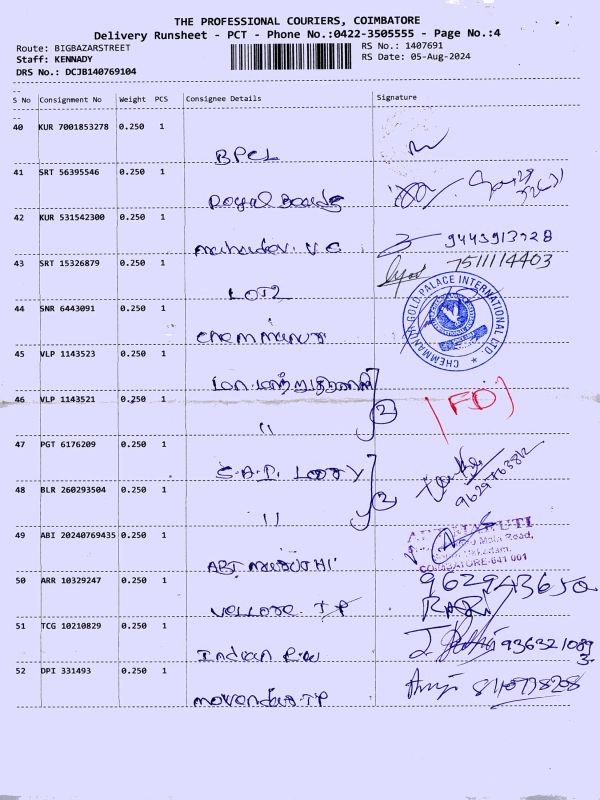 THE PROFESSIONAL COURIERS, COIMBATORE
Delivery Runsheet - PCT - Phone No.:0422-3505555 - Page No.:4
Route: BIGBAZARSTREET RS No.: 1407691
Staff: KENNADY RS Date: 05-Aug-2024
DRS No.: DCJB140769104
S No Consignment No Weight PCS Consignee Details Signature
40 KUR 7001853278 0.250 1
BPCL
41 SRT 56395546 0.250 1
Royal Boards
42 KUR 531542300 0.250 1
mahadev. V C 9443913728
43 SRT 15326879 0.250 1 7511114403
LOT2
44 SNR 6443091 0.250 1
CHEMMANUR GOLD PALACE INTERNATIONAL LTD.
chemmanur
45 VLP 1143523 0.250 1
46 VLP 1143521 0.250 1
" 2
47 PGT 6176209 0.250 1
S.A.P. Lorry
48 BLR 260293504 0.250 1 9629763812
" 2
49 ABI 20240769435 0.250 1
MARUTI
Main Road,
COIMBATORE-641 001
ABT maruthi
50 ARR 10329247 0.250 1 962943650
Vellore. TP
51 TCG 10210829 0.250 1
Indian 9363210893
52 DPI 331493 0.250 1
TP